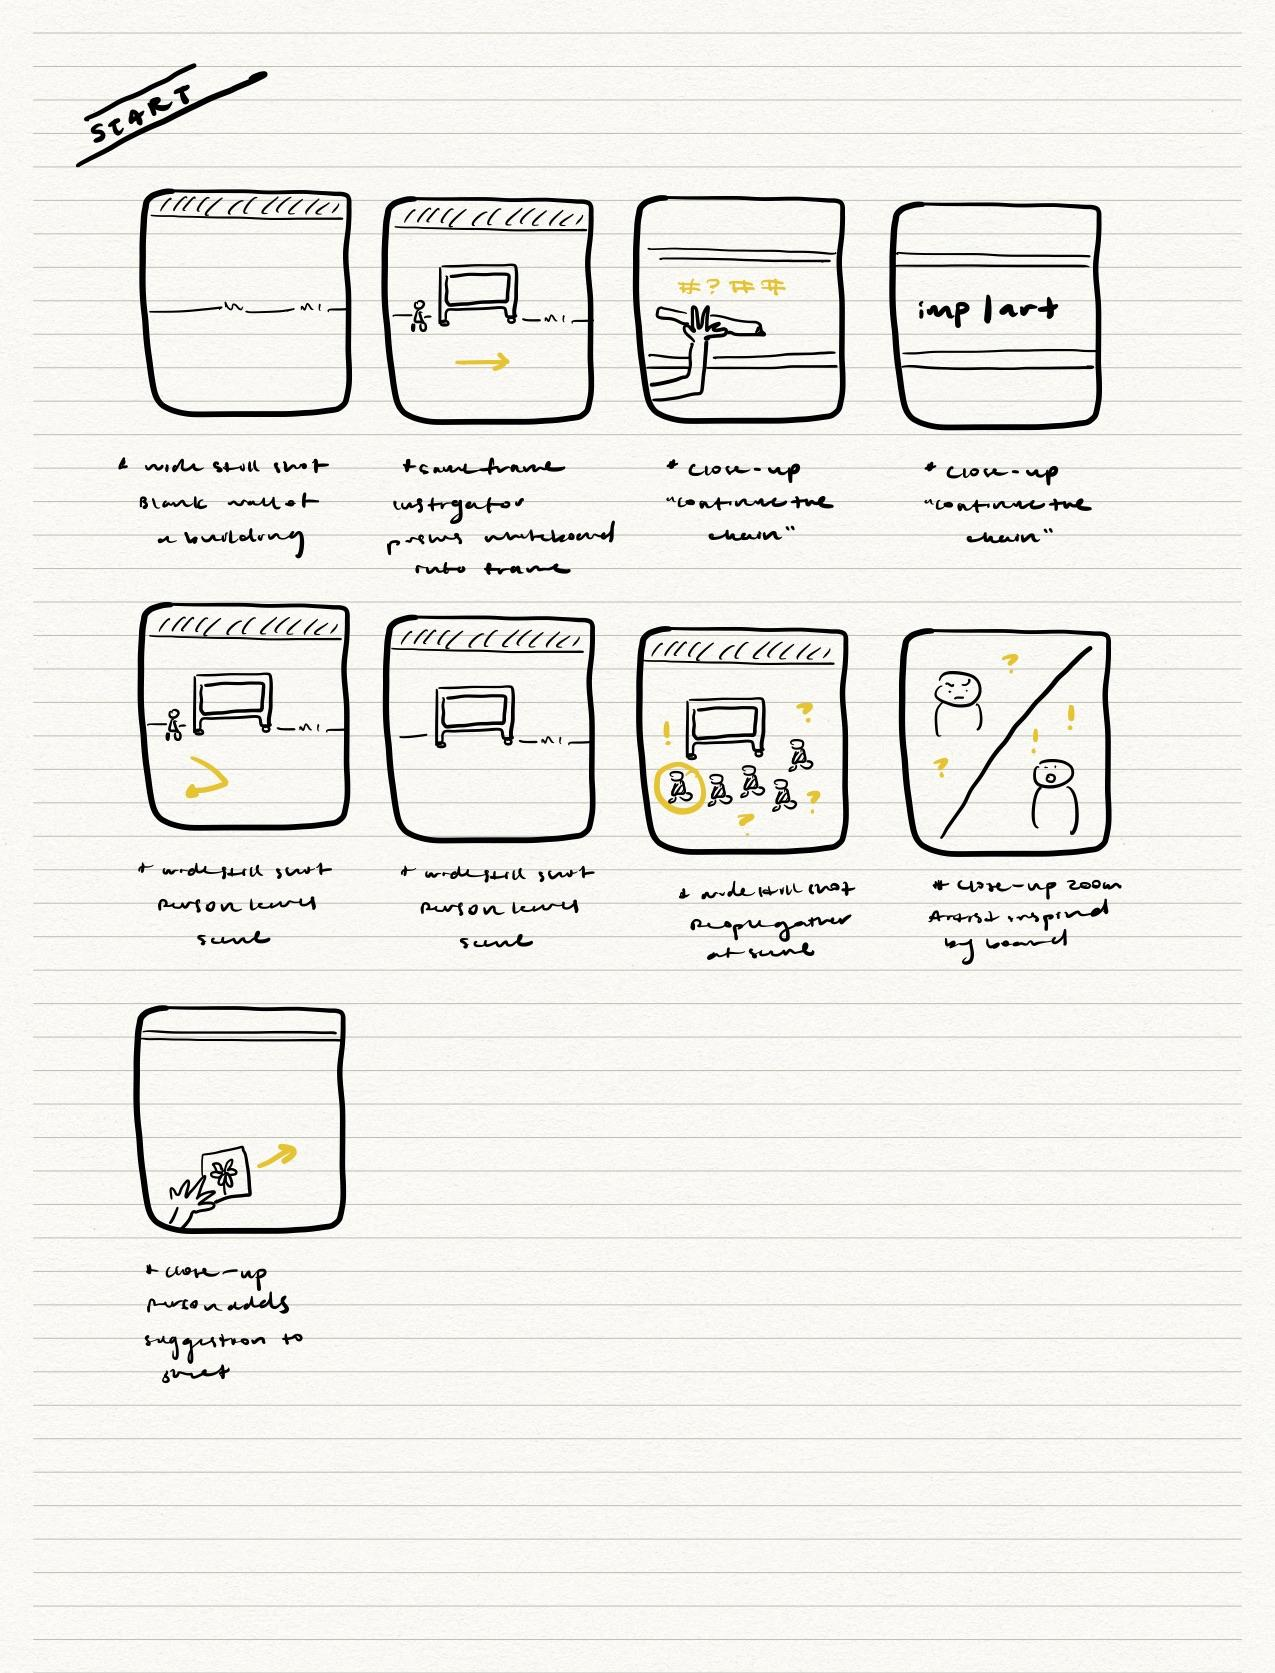 START
#?##
imp|art
* wide still shot
Blank wall of
a building
* same frame
instigator
pushes whiteboard
into frame
* close-up
"continue the
chain"
* close-up
"continue the
chain"
?
!
!
?
?
!
?
?
* wide still shot
Person leaves
scene
* wide still shot
Person leaves
scene
* wide still shot
People gather
at scene
* close-up zoom
Artist inspired
by board
* close-up
Person adds
suggestion to